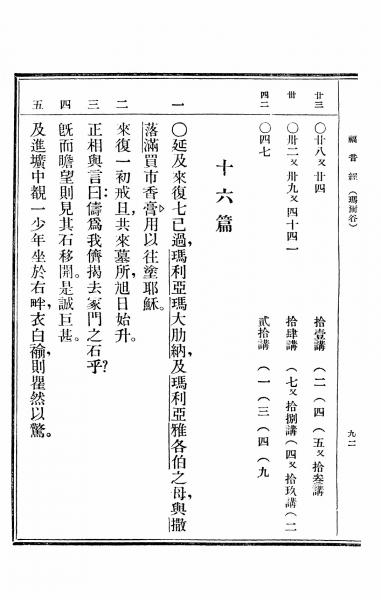 福音經 (瑪爾谷) 九二
廿三 〇廿八又廿四 拾壹講 (二 (四 (五又拾叁講
卅 〇卅二又卅九又四十四一 拾肆講 (七又拾捌講 (四又拾玖講 (二
四二 〇四七 貳拾講 (一 (三 (四 (九
十六篇
一 〇延及來復七已過,瑪利亞瑪大肋納,及瑪利亞雅各伯之母,與撒
落滿買市香膏,用以往塗耶穌。
二 來復一初戒旦,共來墓所,旭日始升。
三 正相與言曰:儔爲我儕揭去冢門之石乎?
四 旣而瞻望則見其石移開。是誠巨甚。
五 及進壙中覩一少年坐於右畔,衣白褕,則瞿然以驚。